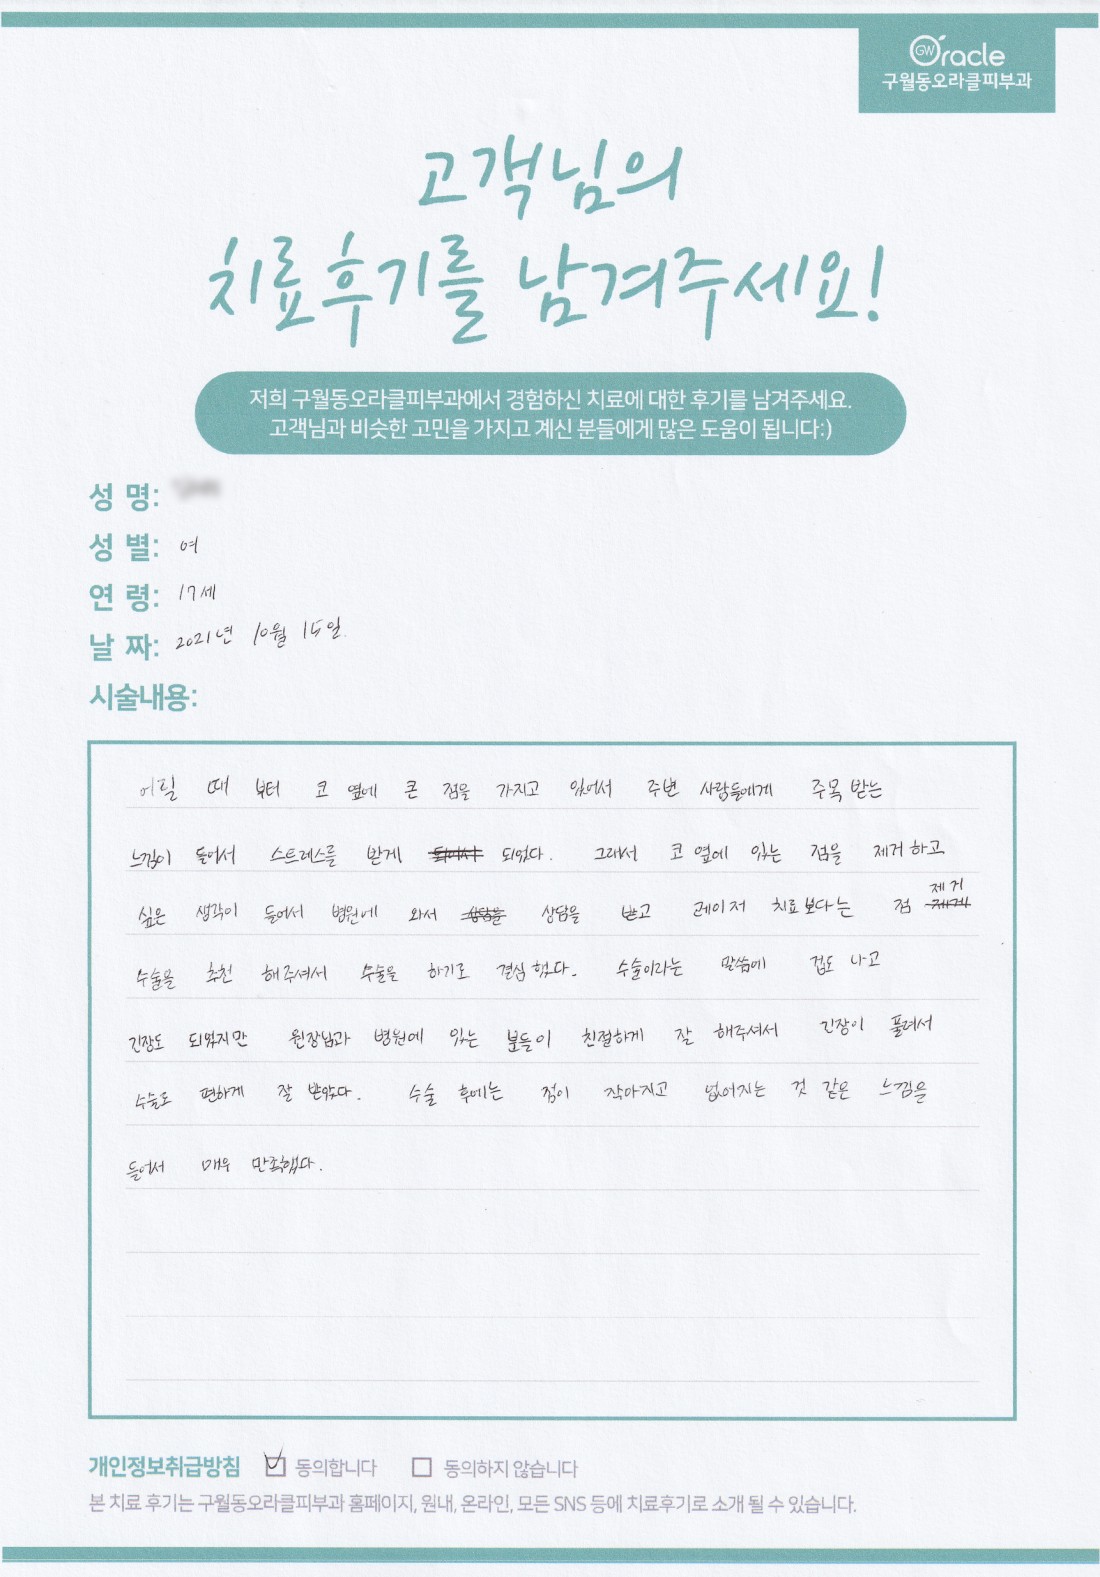 GW Oracle
구월동오라클피부과
고객님의
치료후기를 남겨주세요!
저희 구월동오라클피부과에서 경험하신 치료에 대한 후기를 남겨주세요.
고객님과 비슷한 고민을 가지고 계신 분들에게 많은 도움이 됩니다:)
성 명:
성 별: 여
연 령: 17세
날 짜: 2021년 10월 15일.
시술내용:
어릴 때 부터 코 옆에 큰 점을 가지고 있어서 주변 사람들에게 주목 받는
느낌이 들어서 스트레스를 받게 되었다. 그래서 코 옆에 있는 점을 제거 하고
싶은 생각이 들어서 병원에 와서 상담을 받고 레이저 치료 보다는 점 제거
수술을 추천 해주셔서 수술을 하기로 결심 했다. 수술이라는 말씀에 겁도 나고
긴장도 되었지만 원장님과 병원에 있는 분들이 친절하게 잘 해주셔서 긴장이 풀려서
수술도 편하게 잘 받았다. 수술 후에는 점이 작아지고 없어지는 것 같은 느낌을
들어서 매우 만족했다.
개인정보취급방침 동의합니다 동의하지 않습니다
본 치료 후기는 구월동오라클피부과 홈페이지, 원내, 온라인, 모든 SNS 등에 치료후기로 소개 될 수 있습니다.